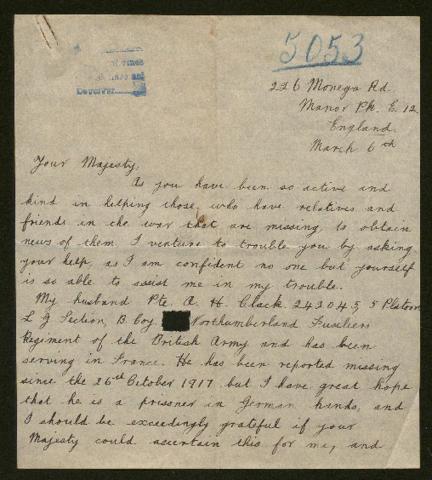 5053
Deurover
226 Monega Rd.
Manor Pk. E. 12
England.
March 6th
Your Majesty,
As you have been so active and
kind in helping those, who have relatives and
friends in the war that are missing, to obtain
news of them I venture to trouble you by asking
your help, as I am confident no one but yourself
is so able to assist me in my trouble.
My husband Pte. A. H. Clack. 243045, 5 Platoon
L G Section, B. Coy. Northumberland Fusiliers
Regiment of the British Army and has been
serving in France. He has been reported missing
since the 26th October 1917 but I have great hope
that he is a prisoner in German hands, and
I should be exceedingly grateful if your
Majesty could ascertain this for me, and